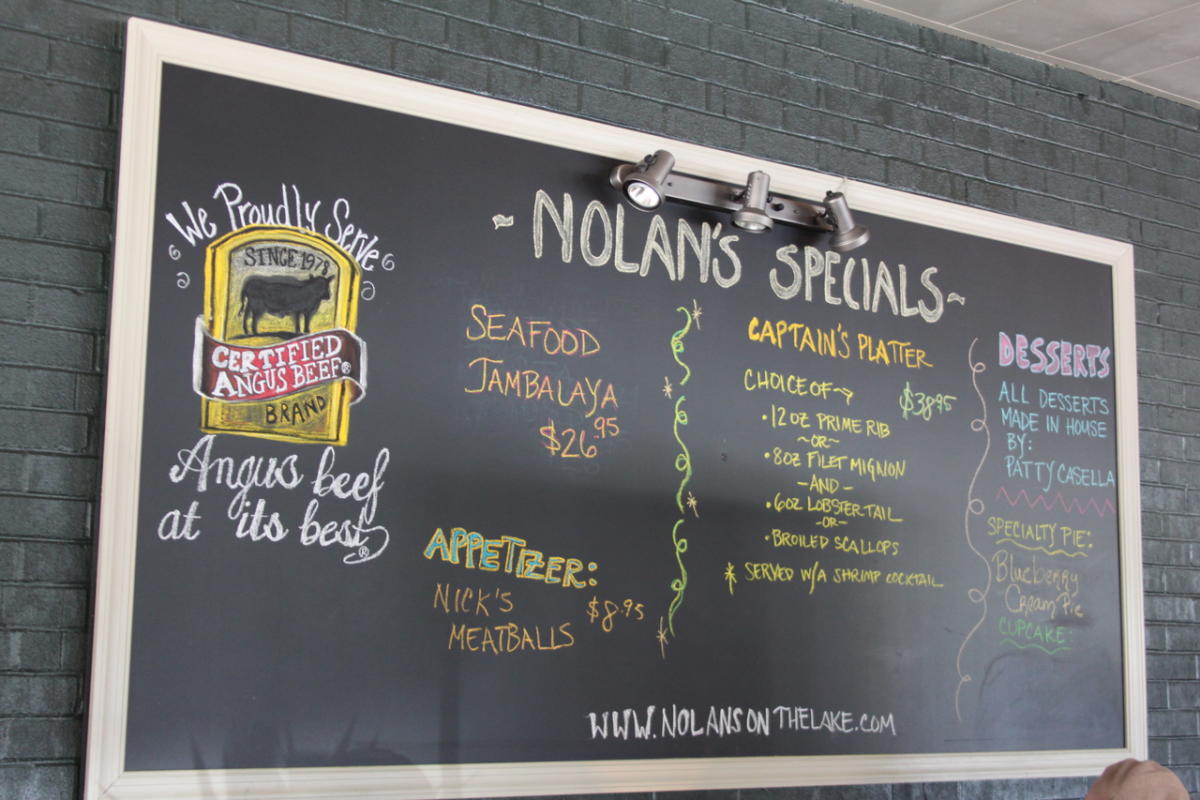 We Proudly Serve
SINCE 1978
CERTIFIED
ANGUS BEEF®
BRAND
Angus beef
at its best®
~NOLAN'S SPECIALS~
SEAFOOD
JAMBALAYA
$26.95
APPETIZER:
NICK'S $8.95
MEATBALLS
CAPTAIN'S PLATTER
CHOICE OF→ $38.95
•12 OZ PRIME RIB
~OR~
•8OZ FILET MIGNON
—AND—
•6OZ LOBSTER TAIL
-OR-
•BROILED SCALLOPS
* SERVED W/A SHRIMP COCKTAIL
DESSERTS
ALL DESSERTS
MADE IN HOUSE
BY:
PATTY CASELLA
SPECIALTY PIE:
Blueberry
Cream Pie
CUPCAKE:
WWW.NOLANSONTHELAKE.COM